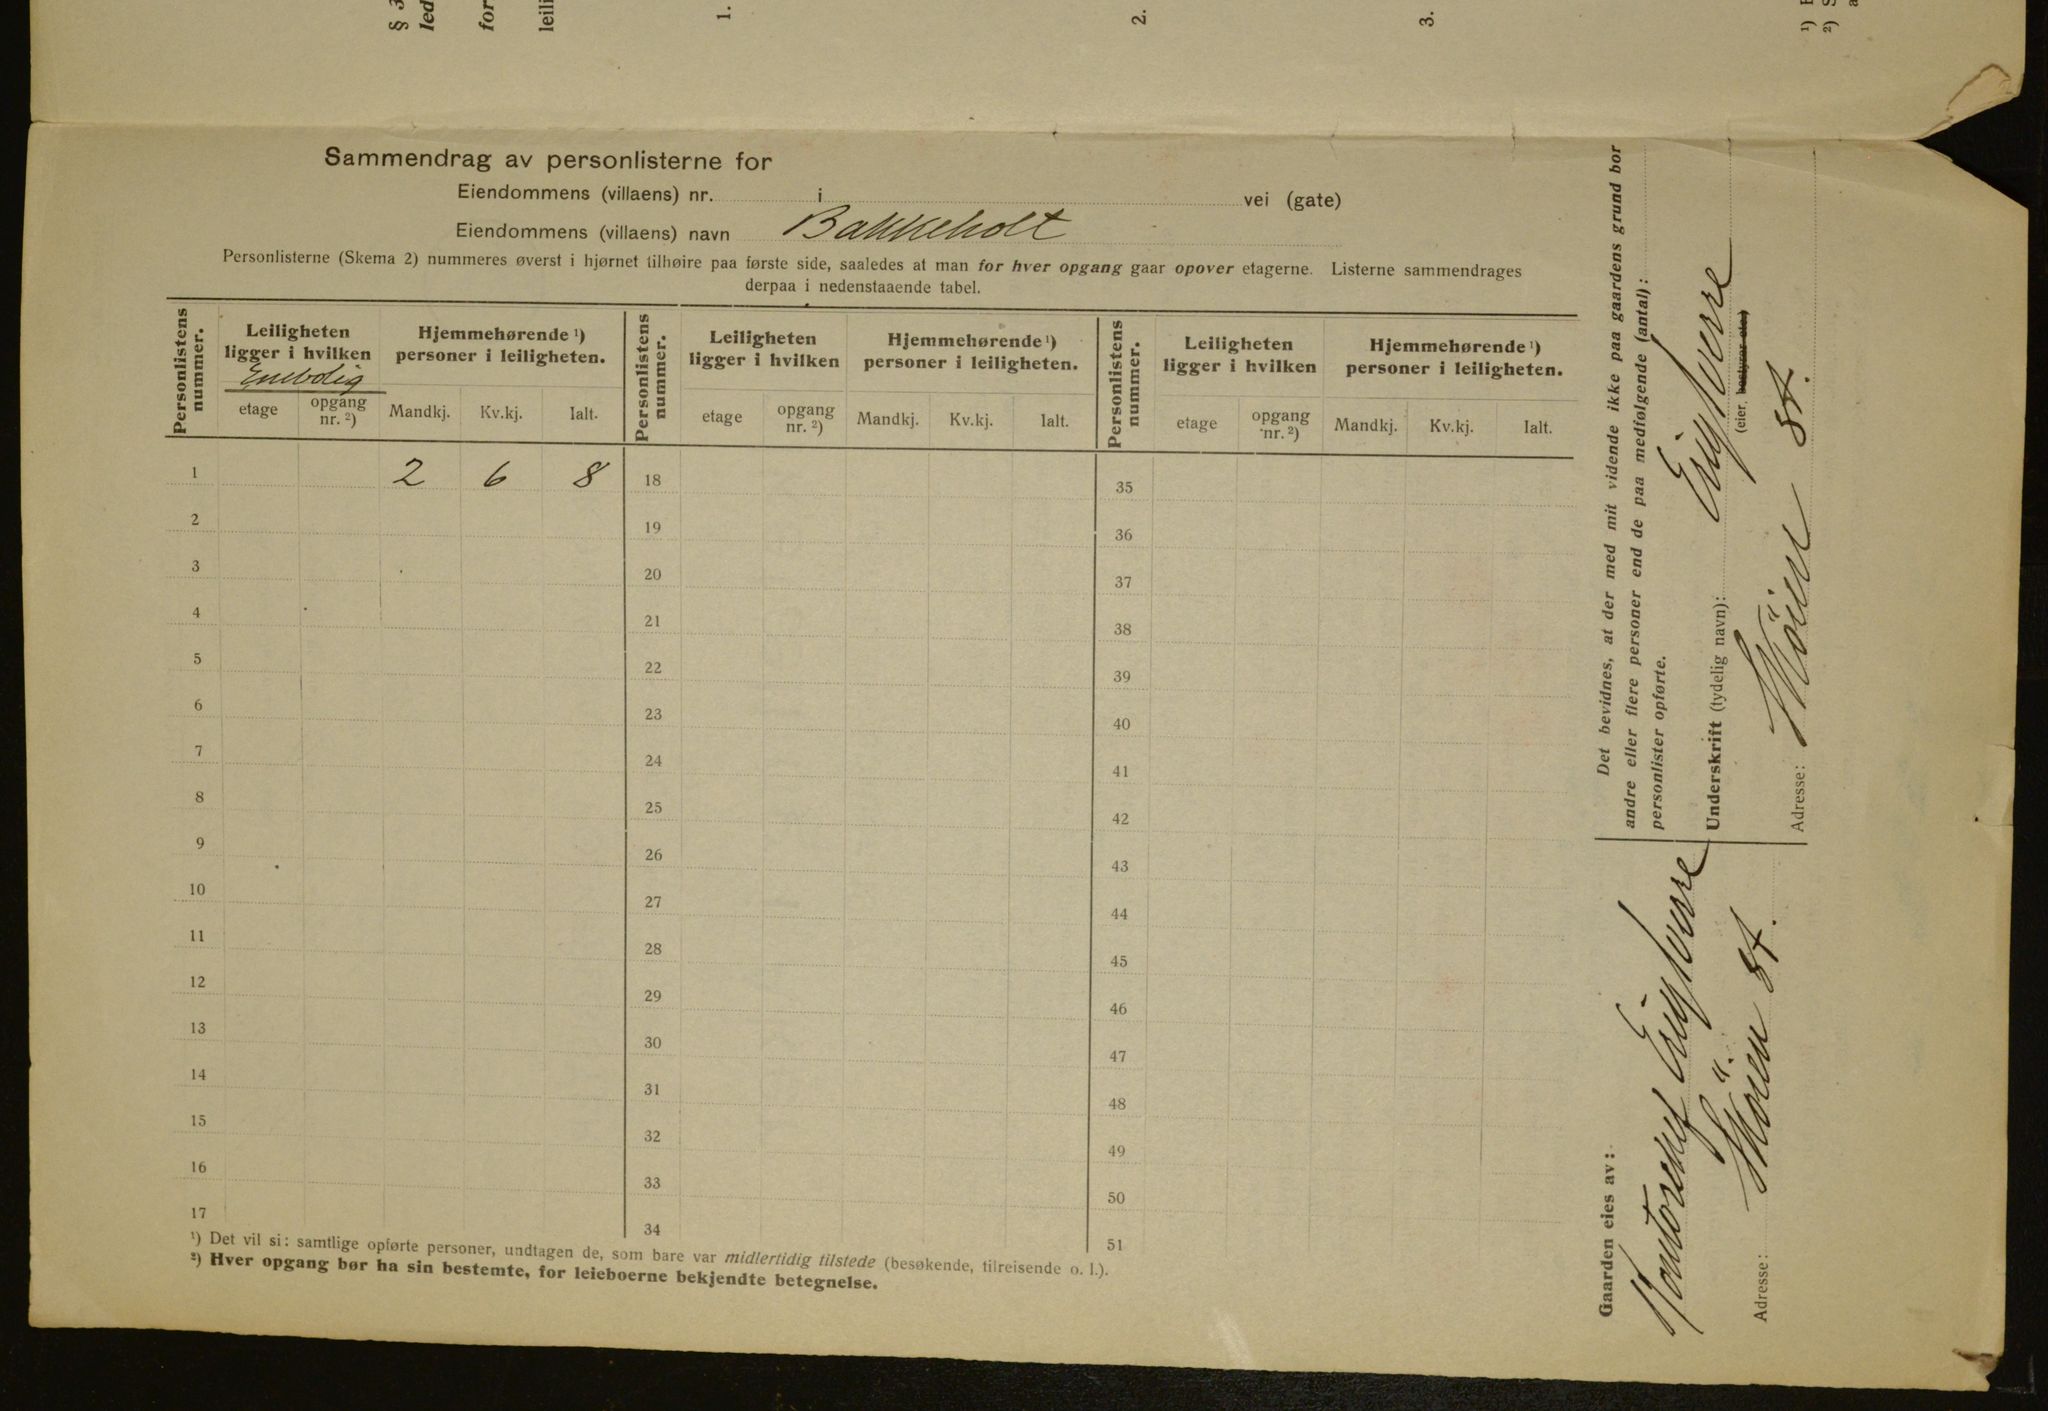 § 3
led
for
leili
1.
2.
3.
¹)
²) S
a
Sammendrag av personlisterne for
Eiendommens (villaens) nr. i vei (gate)
Eiendommens (villaens) navn Bakkeholt
Personlisterne (Skema 2) nummeres øverst i hjørnet tilhøire paa første side, saaledes at man for hver opgang gaar opover etagerne. Listerne sammendrages
derpaa i nedenstaaende tabel.
Personlistens nummer. Leiligheten ligger i hvilken Enebolig etage opgang nr. ²) Hjemmehørende ¹) personer i leiligheten. Mandkj. Kv.kj. Ialt.
Personlistens nummer. Leiligheten ligger i hvilken etage opgang nr. ²) Hjemmehørende ¹) personer i leiligheten. Mandkj. Kv.kj. Ialt.
Personlistens nummer. Leiligheten ligger i hvilken etage opgang nr. ²) Hjemmehørende ¹) personer i leiligheten. Mandkj. Kv.kj. Ialt.
1 2 6 8 18 35
2 19 36
3 20 37
4 21 38
5 22 39
6 23 40
7 24 41
8 25 42
9 26 43
10 27 44
11 28 45
12 29 46
13 30 47
14 31 48
15 32 49
16 33 50
17 34 51
¹) Det vil si: samtlige opførte personer, undtagen de, som bare var midlertidig tilstede (besøkende, tilreisende o. l.).
²) Hver opgang bør ha sin bestemte, for leieboerne bekjendte betegnelse.
Gaarden eies av:
Kontorchef
Adresse: Sköien st.
Det bevidnes, at der med mit vidende ikke paa gaardens grund bor
andre eller flere personer end de paa medfølgende (antal):
personlister opførte.
Underskrift (tydelig navn):
(eier, bestyrer etc.)
Adresse: Sköien st.